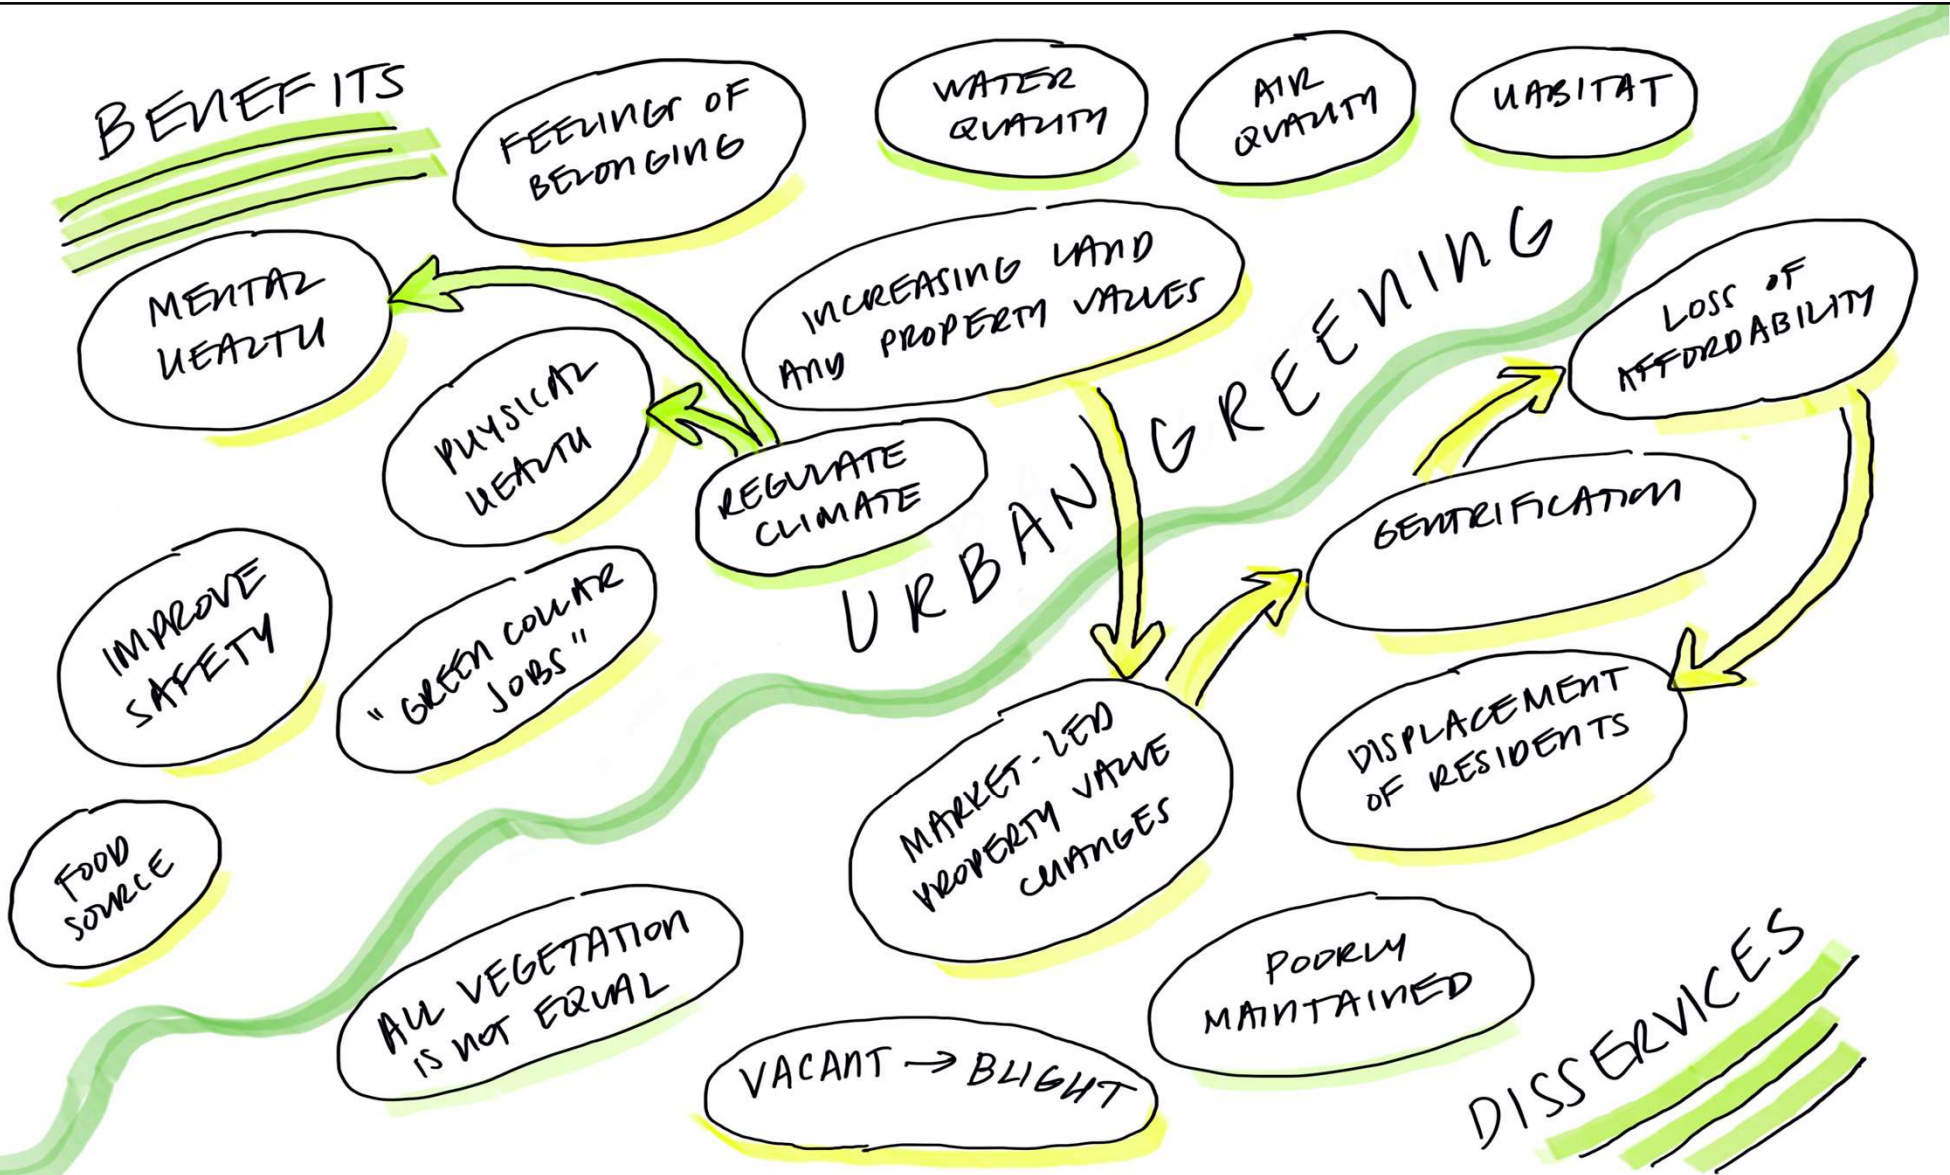 BENEFITS
FEELINGS OF
BELONGING
WATER
QUALITY
AIR
QUALITY
HABITAT
MENTAL
HEALTH
PHYSICAL
HEALTH
INCREASING LAND
AND PROPERTY VALUES
REGULATE
CLIMATE
URBAN GREENING
LOSS OF
AFFORDABILITY
GENTRIFICATION
IMPROVE
SAFETY
"GREEN COLLAR
JOBS"
MARKET-LED
PROPERTY VALUE
CHANGES
DISPLACEMENT
OF RESIDENTS
FOOD
SOURCE
ALL VEGETATION
IS NOT EQUAL
VACANT → BLIGHT
POORLY
MAINTAINED
DISSERVICES